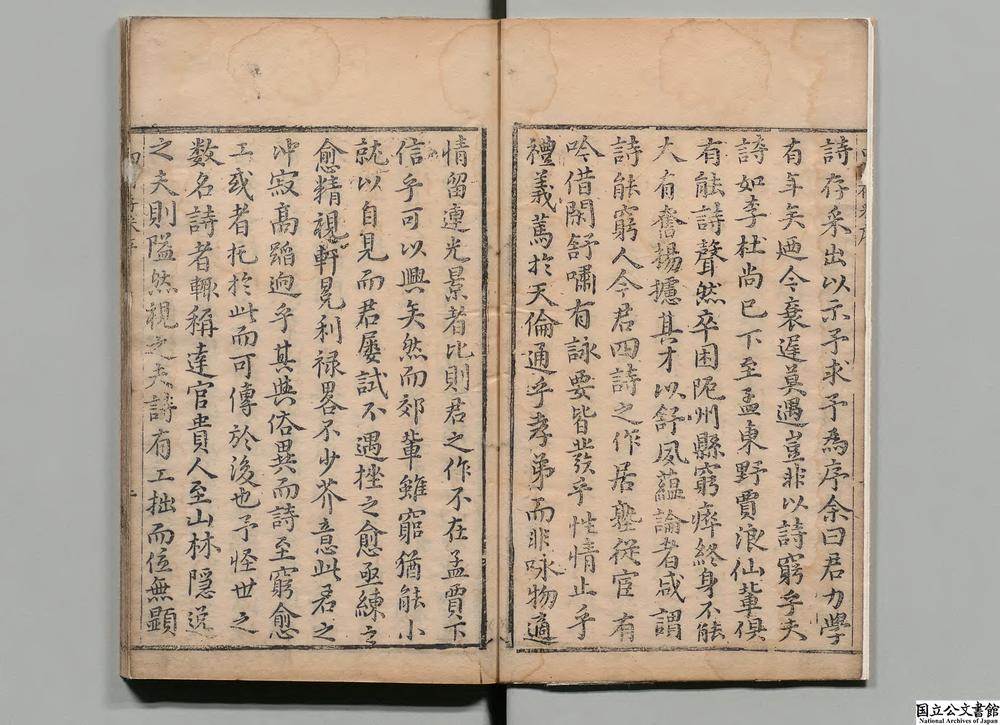 詩存采出以示予求予為序余曰君力學
有年矣迺今衰遅莫遇豈非以詩窮乎夫
詩如李杜尚已下至孟東野賈浪仙輩俱
有能詩聲然卒困阨州縣窮瘁終身不能
大有奮揚攄其才以舒夙蘊論者咸謂
詩能窮人今君四詩之作居塾從宦有
吟借閑舒嘯有詠要皆發乎性情止乎
禮義篤於天倫通乎孝弟而非咏物適
情留連光景者比則君之作不在孟賈下
信乎可以興矣然而郊輩雖窮猶能小
就以自見而君屡試不遇挫之愈亟練之
愈精視軒冕利禄畧不少芥意此君之
冲寂高蹈逈乎其與俗異而詩至窮愈
工或者托於此而可傳於後也予怪世之
数名詩者輒稱達官貴人至山林隠逸
之夫則隘然視之夫詩有工拙而位無顯
国立公文書館
National Archives of Japan